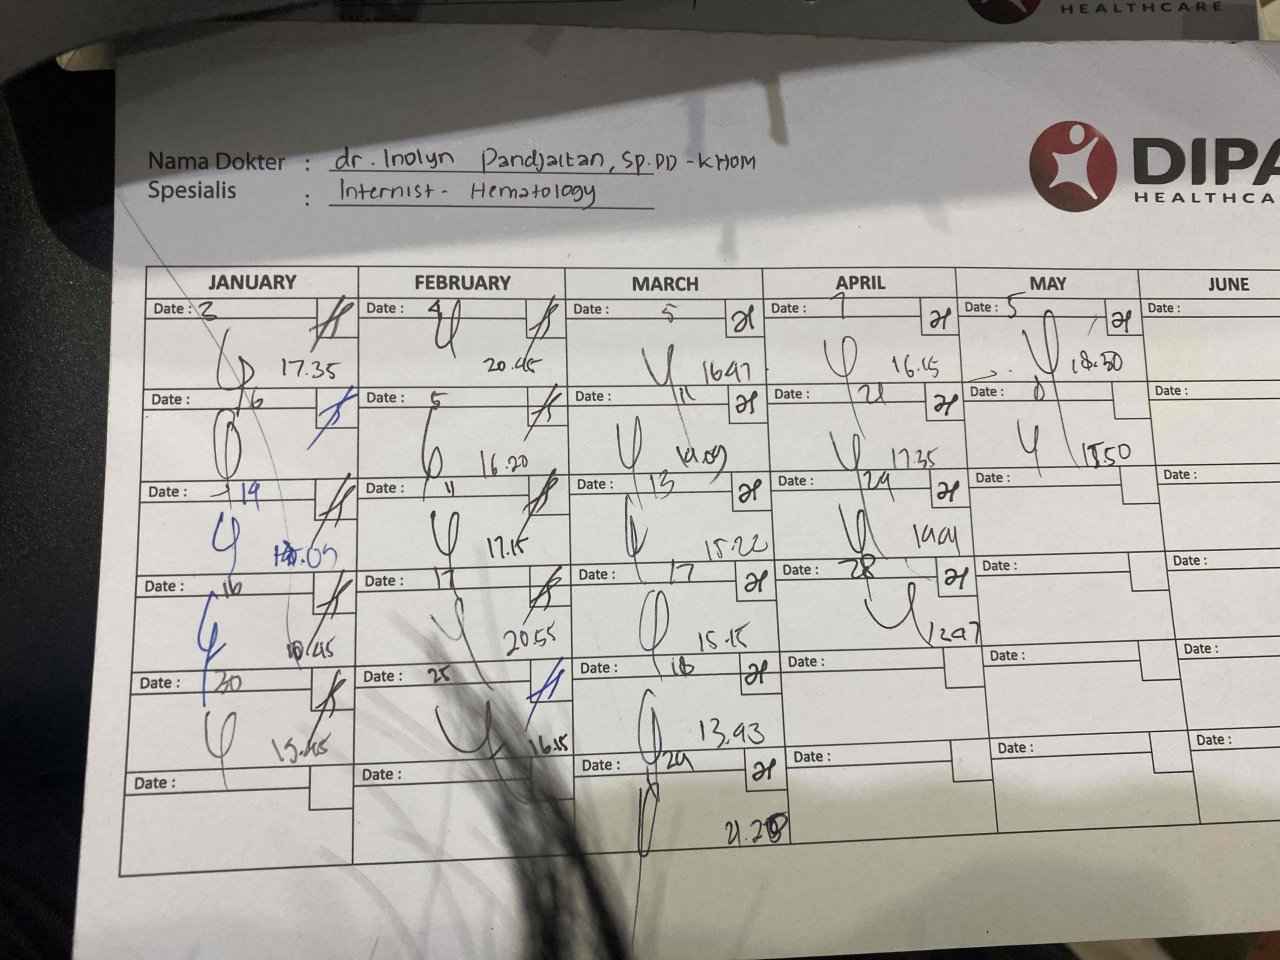 HEALTHCARE
Nama Dokter : dr. Inolyn Pandjaitan, Sp.PD-KHOM
Spesialis : Internist - Hematology
DIPA
HEALTHCA
JANUARY FEBRUARY MARCH APRIL MAY JUNE
Date : 2 Date : 4 Date : 5 Date : 7 Date : 5 Date :
17.35 20.45 1647 16.15 18.30
Date : Date : 5 Date : 11 Date : 21 Date : 8 Date :
16.20 17.35 1550
Date : 14 Date : 11 Date : 13 Date : 24 Date : Date :
17.15 15.22
Date : 16 Date : 17 Date : 17 Date : 28 Date : Date :
20.55 15.15 1247
Date : 30 Date : 25 Date : 18 Date : Date : Date :
15.45 16.15 13.43
Date : Date : Date : 24 Date : Date : Date :